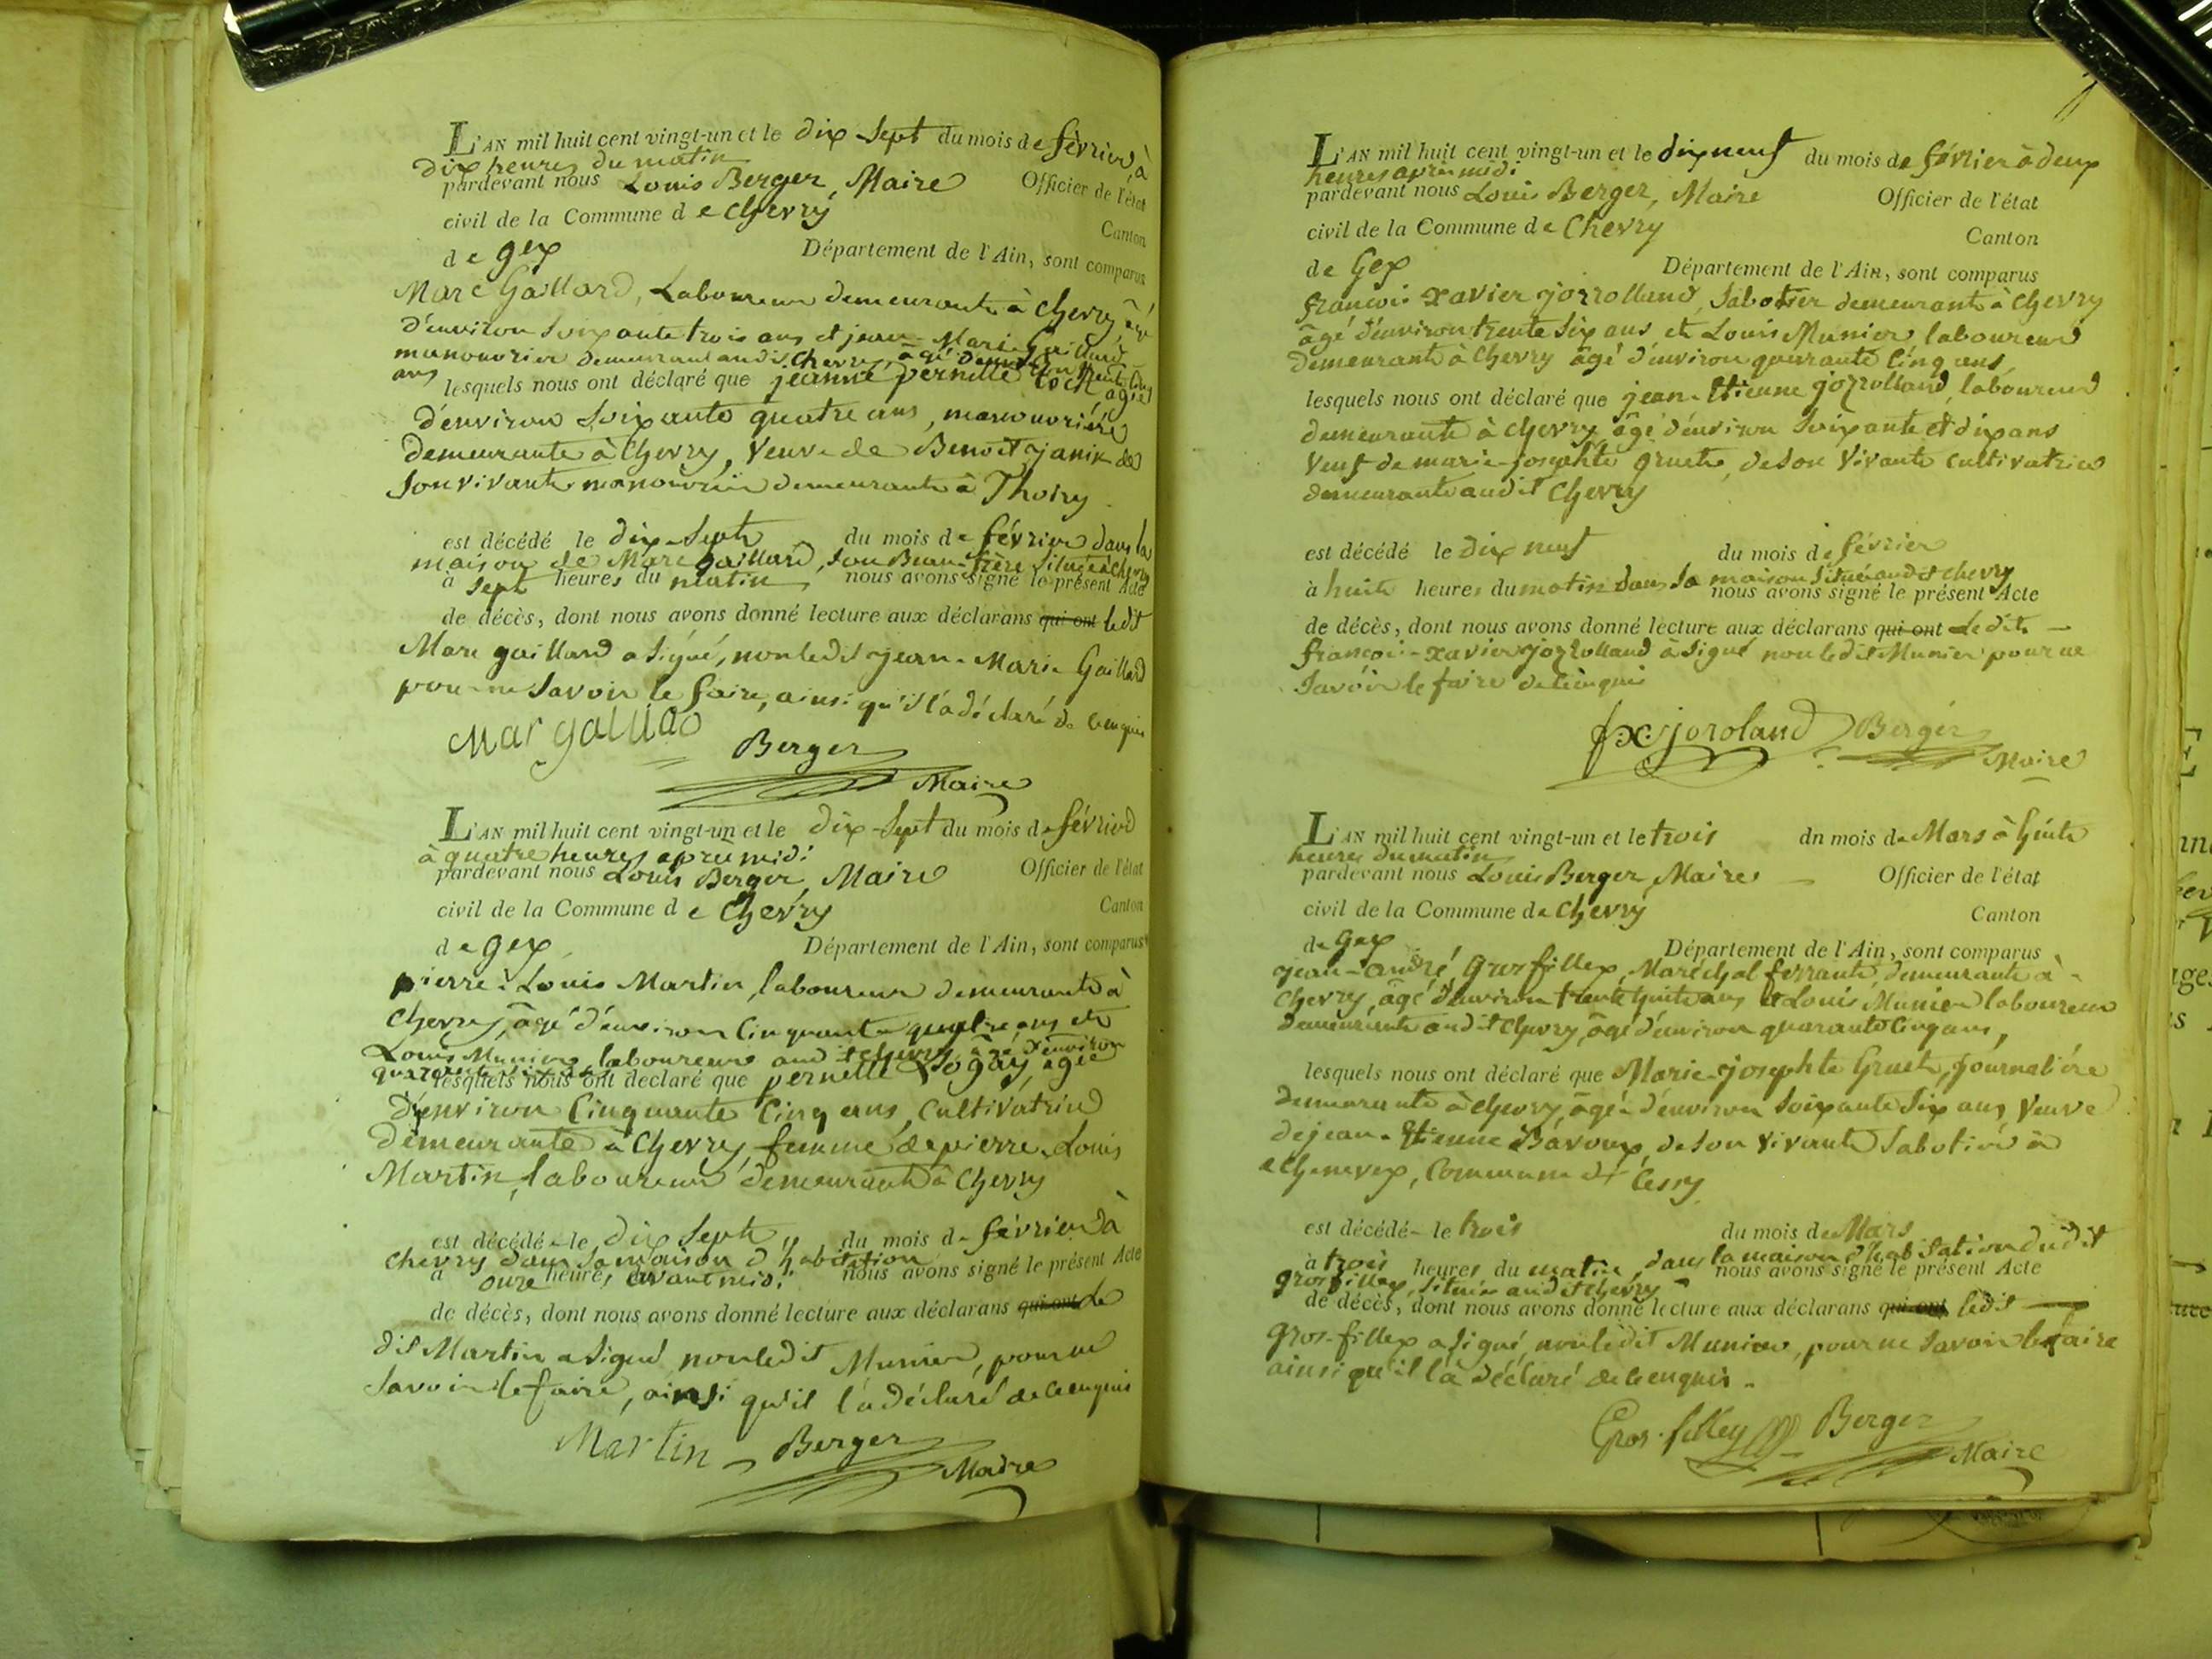 L'AN mil huit cent vingt-un et le dix-sept du mois de février, à
dix heures du matin
pardevant nous Louis Berger, Maire Officier de l'état
civil de la Commune de Chevry
Canton
de gex Département de l'Ain, sont comparus
Marc Gaillard, Laboureur demeurant à Chevry, âgé
d'environ soixante trois ans et jean-Marie Gaillard
manouvrier demeurant audit Chevry, âgé d'environ trente cinq
ans
lesquels nous ont déclaré que jeanne pernette agée
d'environ soixante quatre ans, manouvrière
demeurante à Chevry, Veuve de Benoit janin de
son vivant manouvrier demeurante à Thoiry
est décédé le dix-sept du mois de février dans la
maison de Marc gaillard, son Beau-frère située à Chevry
à sept heures du matin nous avons signé le présent Acte
de décès, dont nous avons donné lecture aux déclarans qui ont ledit
Marc gaillard a signé, non ledit jean-Marie Gaillard
pour ne savoir le faire, ainsi qu'il l'a déclaré de ce enquis
Mar gaillad
Berger
Maire
L'AN mil huit cent vingt-un et le dix-sept du mois de février
à quatre heures après midi
pardevant nous Louis Berger, Maire Officier de l'état
civil de la Commune de Chevry Canton
de gex Département de l'Ain, sont comparus
pierre-Louis Martin, laboureur demeurant à
Chevry, âgé d'environ Cinquante quatre ans et
Louis Munier laboureur audit Chevry, âgé d'environ
quarante
lesquels nous ont déclaré que pernette agée
d'environ Cinquante Cinq ans, Cultivatrice
demeurante à Chevry, femme de pierre-Louis
Martin, laboureur demeurant à Chevry
est décédée le dix sept du mois de février à
Chevry dans sa maison d'habitation
à onze heures avant midi nous avons signé le présent Acte
de décès, dont nous avons donné lecture aux déclarans qui ont le
dit Martin a signé non ledit Munier, pour ne
savoir le faire, ainsi qu'il l'a déclaré de ce enquis
Martin Berger
Maire
L'AN mil huit cent vingt-un et le dix neuf du mois de février à deux
heures après midi
pardevant nous Louis Berger, Maire Officier de l'état
civil de la Commune de Chevry Canton
de Gex Département de l'Ain, sont comparus
françois xavier jozrolland, Sabotier demeurant à Chevry
âgé d'environ trente six ans et Louis Munier laboureur
demeurant à Chevry âgé d'environ quarante Cinq ans,
lesquels nous ont déclaré que jean-Etienne jozrolland, laboureur
demeurant à Chevry âgé d'environ soixante et dix ans
Veuf de marie-josephte gruet, de son Vivante Cultivatrice
demeurante audit Chevry
est décédé le dix neuf du mois de février
à huit heures du matin dans sa maison située audit Chevry
nous avons signé le présent Acte
de décès, dont nous avons donné lecture aux déclarans qui ont Ledit
françois-xavier jozrolland a signé non ledit Munier pour ne
savoir le faire de ce enquis
fx joroland Berger
Maire
L'AN mil huit cent vingt-un et le trois dn mois de Mars à huit
heures du matin
pardevant nous Louis Berger, Maire Officier de l'état
civil de la Commune de Chevry Canton
de gex Département de l'Ain, sont comparus
jean-andré Grosfillex, Maréchal ferrant, demeurant à
Chevry, âgé d'environ trente huit ans et Louis Munier laboureur
demeurante audit Chevry, âgé d'environ quarante Cinq ans,
lesquels nous ont déclaré que Marie-josephte Gruet, journalière
demeurante à Chevry, âgée d'environ soixante six ans, Veuve
de jean-Etienne Bavoux, de son Vivant Sabotier à
Chenevex, Commune de Cessy
est décédé- le trois du mois de Mars
à trois heures du matin, dans la maison d'habitation dudit
nous avons signé le présent Acte
grosfillex, située audit Chevry
de décès, dont nous avons donné lecture aux déclarans qui ont ledit
Gros-fillex a signé, non ledit Munier, pour ne savoir le faire
ainsi qu'il l'a déclaré de ce enquis.
Gros-filley Berger
Maire